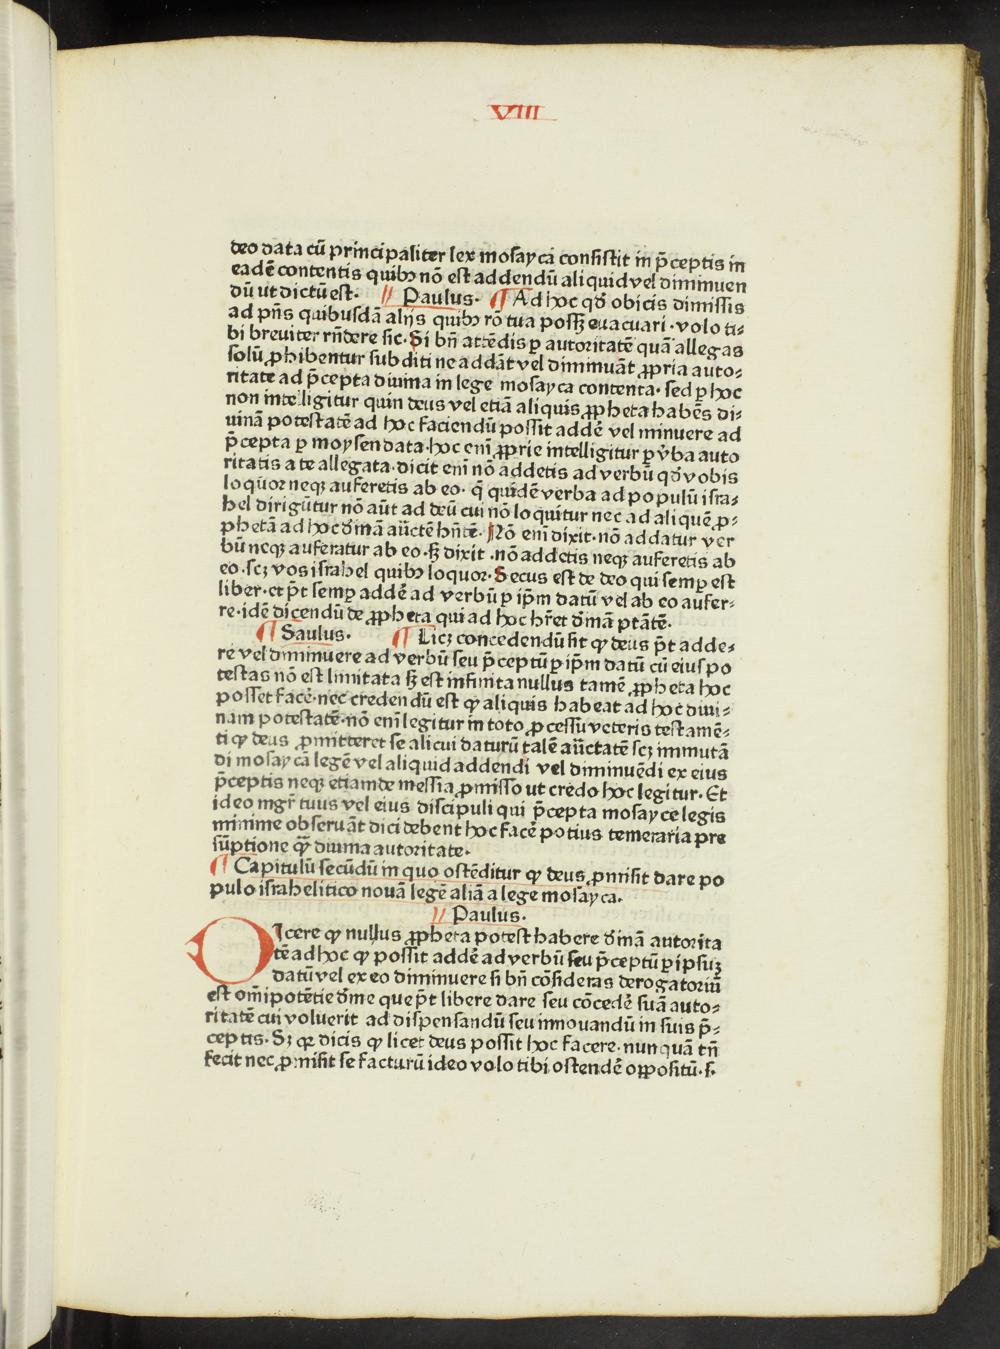 VIII
deo data cū principaliter lex mosaycā consistit in p̄ceptis in
eadē contentis quibꝫ nō est addendū aliquid vel diminuen
dū ut dictū est. Paulus. ¶ Ad hoc qď obicis dimissis
ad pn̄s quibusdā alijs quibꝫ rō tua possꝫ euacuari. volo ti⸗
bi breuiter rn̄dere sic. Si bn̄ attēdis ꝑ autoritatē quā allegas
solū ꝓhibentur subditi ne addāt vel diminuāt ꝓpria auto⸗
ritate ad p̄cepta diuina in lege mosayca contenta. sed ꝑ hoc
non intelligitur quin deus vel etiā aliquis ꝓpheta habēs di⸗
uinā potestatē ad hoc faciendū possit addē vel minuere ad
p̄cepta ꝑ moysen data. hoc enī ꝓprie intelligitur ꝑ v̄ba auto
ritatis a te allegata. dicit enī nō addetis ad verbū qď vobis
loquor neqꝫ auferetis ab eo. q̄ quidē verba ad populū isra⸗
hel dirigūtur nō aūt ad deū cui nō loquitur nec ad aliquē ꝓ⸗
phetā ad hoc ďmā aūctē hn̄tē. Nō enī dixit. nō addatur ver
bū neqꝫ auferatur ab eo. sꝫ dixit. nō addetis neqꝫ auferetis ab
eo. scꝫ vos israhel quibꝫ loquor. Secus est de deo qui semꝑ est
liber. et p̄t semꝑ addē ad verbū ꝑ ip̄m datū vel ab eo aufer⸗
re. idē dicendū de ꝓpheta qui ad hoc hr̄et ďmā ptātē.
¶ Saulus. ¶ Licꝫ concedendū sit ꝙ deus p̄t adde⸗
re vel diminuere ad verbū seu p̄ceptū ꝑ ip̄m datū cū eius po
testas nō est limitata sꝫ est infinita nullus tamē ꝓpheta hoc
posset facē. nec credendū est ꝙ aliquis habeat ad hoc diui⸗
nam potestatē. nō enī legitur in toto ꝓcessu veteris testamē⸗
ti ꝙ deus ꝓmitteret se alicui daturū talē aūctatē scꝫ immutā
di mosaycā legē vel aliquid addendi vel diminuēdi ex eius
p̄ceptis neqꝫ etiam de messia ꝓmisso ut credo hoc legitur. Et
ideo mgr̄ tuus vel eius discipuli qui p̄cepta mosayce legis
minime obseruāt dici debent hoc facē potius temeraria pre
sūptione qꝫ̄ diuina autoritate.
¶ Capitulū secūdū in quo ostēditur ꝙ deus ꝓmisit dare po
pulo israhelitico nouā legē aliā a lege mosayca.
Paulus.
DIcere ꝙ nullus ꝓpheta potest habere ďmā autorita
tē ad hoc ꝙ possit addē ad verbū seu p̄ceptū ꝑ ipsuꝫ
datū vel ex eo diminuere si bn̄ cōsideras derogatoriū
est om̄ipotētie ďme que p̄t libere dare seu cōcedē suā auto⸗
ritatē cui voluerit ad dispensandū seu innouandū in suis p̄⸗
ceptis. Sꝫ qꝛ dicis ꝙ licet deus possit hoc facere. nunquā tn̄
fecit nec ꝓmisit se facturū ideo volo tibi ostendē oppositū. s.